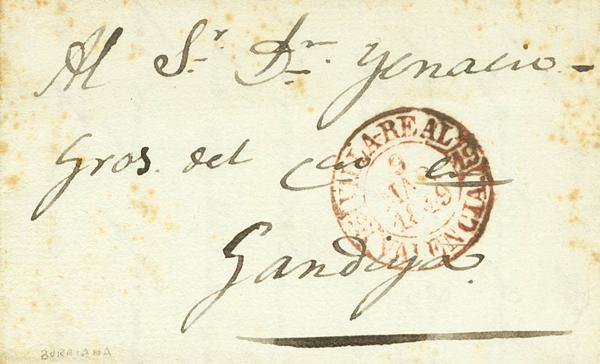 Al Sr. Dn. Ygnacio
Gros. del Cio. en
Gandiya.
VILLA-REAL
9
1849
VALENCIA
BURRIANA